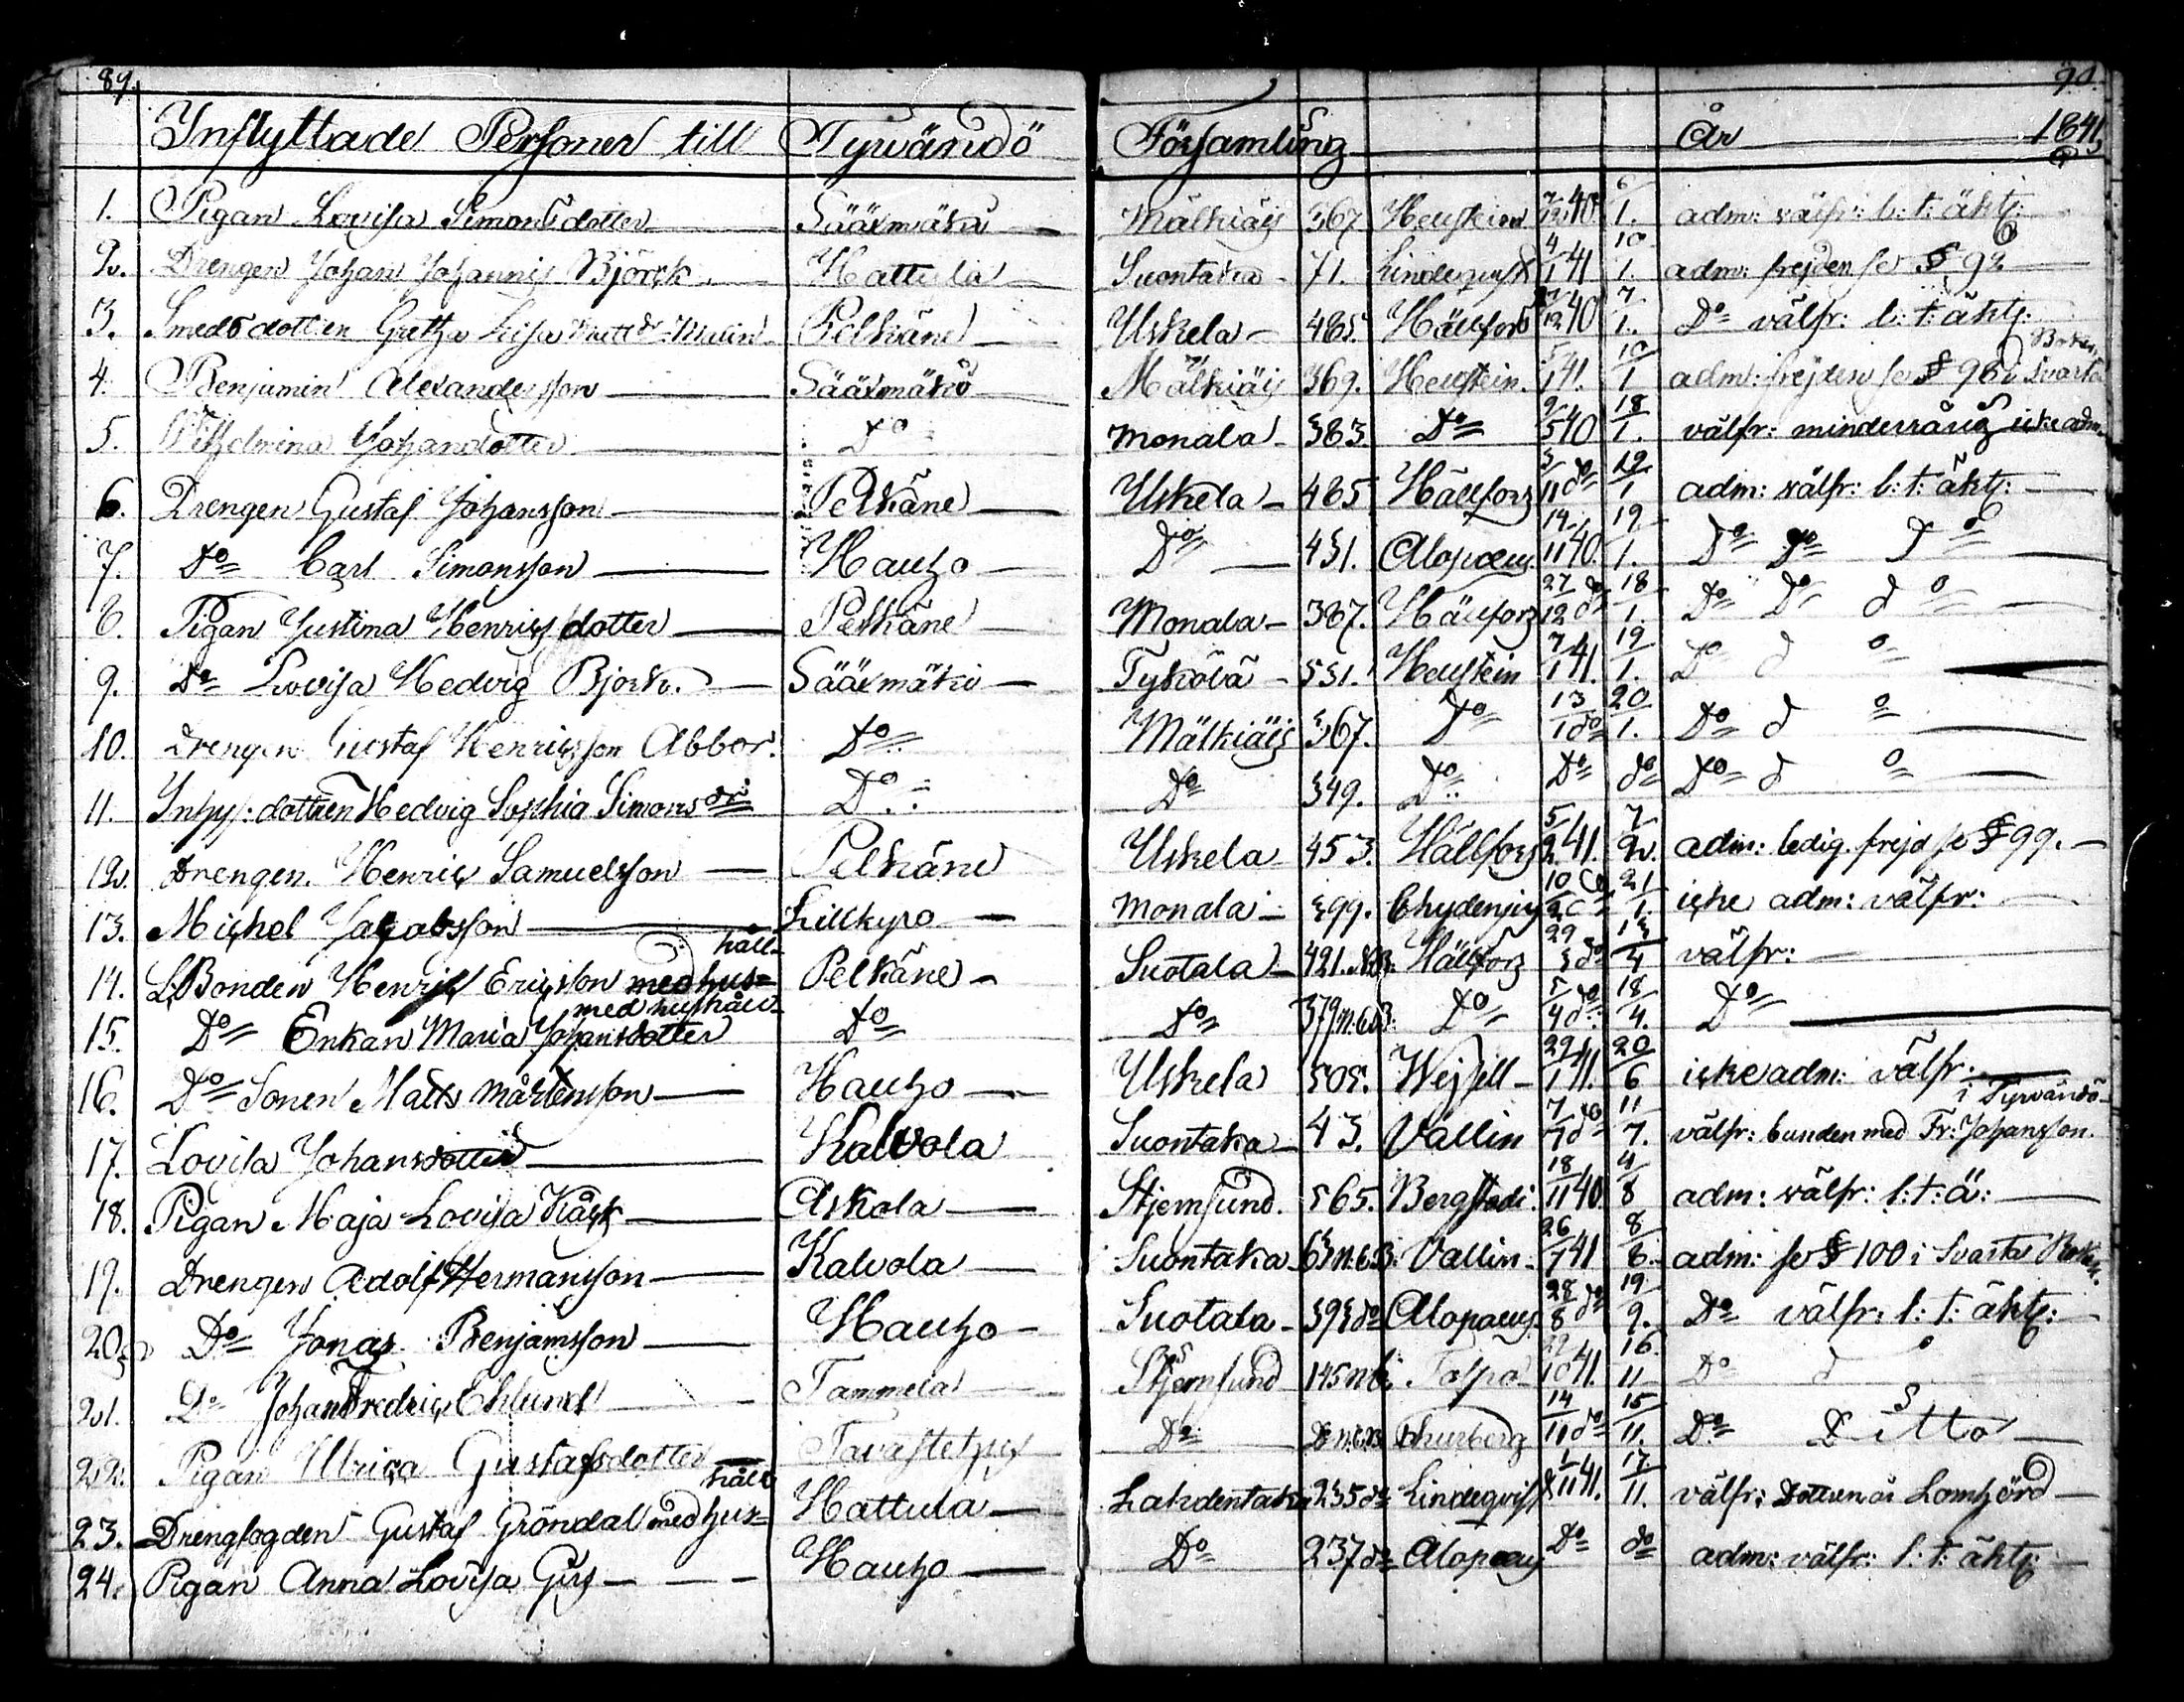 89. 90.
Inflyttade Personer till Tyrvändö Församling År 1841.
1. Pigan Lovisa Simonsdotter Sääxmäki Mälkiäis 367 Hellstein 7/12 40. 6/1. adm: välfr: l: t: ähtz:
2. Drengen Johan Johannis Björck Hattula Suontaka 71. Lindeqvist 4/1 41 10/1. adm: frejden se § 92
3. Smedsdottren Gretha Lisa Pelkäne Uskela 485. Hällfors 12 40 7/1. Do välfr: l: t: ähtz:
4. Benjamin Alexandersson Sääxmäki Mälkiäis 369. Hellstein. 5/1 41. 10/1 adm: frejden se § 96 i Svarta Boken
5. Wilhelmina Johansdotter Do Monala 383 Do 9/5 40 18/1. välfr: minderårig icke adm.
6. Drengen Gustaf Johansson Pelkäne Uskela 485 Hällfors 3/11 do 19/1 adm: välfr: l: t: ähtz:
7. Do Carl Simonsson Hauho Do 451. Alopæus 14/11 40. 19/1. Do Do do
8. Pigan Justina Henricsdotter Pelkäne Monala 387. Hällfors 27/12 do 18/1. Do Do do
9. Do Lovisa Hedvig Björk. Sääxmäki Tykölä 551. Hellstein 7/1 41. 19/1. Do do
10. Drengen Gustaf Henricsson Abbor. Do Mälkiäis 367. Do 13/1 do 20/1. Do do
11. Inhys: dottren Hedvig Sophia Simonsdr Do Do 349. Do Do do Do do
12. Drengen Henric Samuelsson Pelkäne Uskela 453. Hällfors 5/2 41. 7/2. adm: ledig. frejd se § 99.
13. Michel Jacobsson Lillkyro Monala 399. Chydenius 10/2 21/1. icke adm: välfr:
14. L: Bonden Henric Ericsson med hushåll Pelkäne Suotala 421. Hällfors 29/3 do 13/4 välfr:
15. Do Enkan Maria Johansdotter med hushåll Do Do 379 Do 5/4 do 18/4. Do
16. Do Sonen Matts Mårtensson Hauho Uskela 505. Wejsell 29/1 41. 20/6 icke adm: välfr:
17. Lovisa Johansdotter Kalvola Suontaka 43. Vallin 7/7 do 11/7. välfr: bunden med Fr: Johansson. i Tyrvändö
18. Pigan Maja Lovisa Kåsk Askola Stjernsund. 565. Bergstadi 18/11 40. 4/8 adm: välfr: l: t: ä:
19. Drengen Adolf Hermansson Kalvola Suontaka Vallin 26/7 41 8/8. adm: se § 100 i Svarta Boken.
20. Do Jonas Benjamsson Hauho Suotala 393 do Alopaeus 28/8 do 19/9. Do välfr: l: t: ähtz:
21. Do Johan Fredric Ehlund Tammela Stjernsund 145 22/10 41. 16/11 Do do
22. Pigan Ulrica Gustafsdotter Tavastehus Do 14/11 do 15/11. Do Ditto
23. Drengfogden Gustaf Gröndal med hushåll Hattula Lahdentaka 235 do Lindeqvist 1/11 41. 17/11. välfr: Dottren är Lomhörd
24. Pigan Anna Lovisa Hauho Do 237 do Alopaeus Do do adm: välfr: l: t: ähtz: